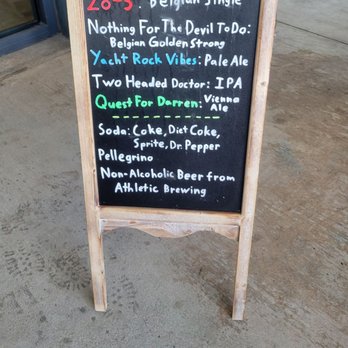 28-5: Belgian Single
Nothing For The Devil To Do:
Belgian Golden Strong
Yacht Rock Vibes: Pale Ale
Two Headed Doctor: IPA
Quest For Darren: Vienna
Ale
Soda: Coke, Diet Coke,
Sprite, Dr. Pepper
Pellegrino
Non-Alcoholic Beer from
Athletic Brewing